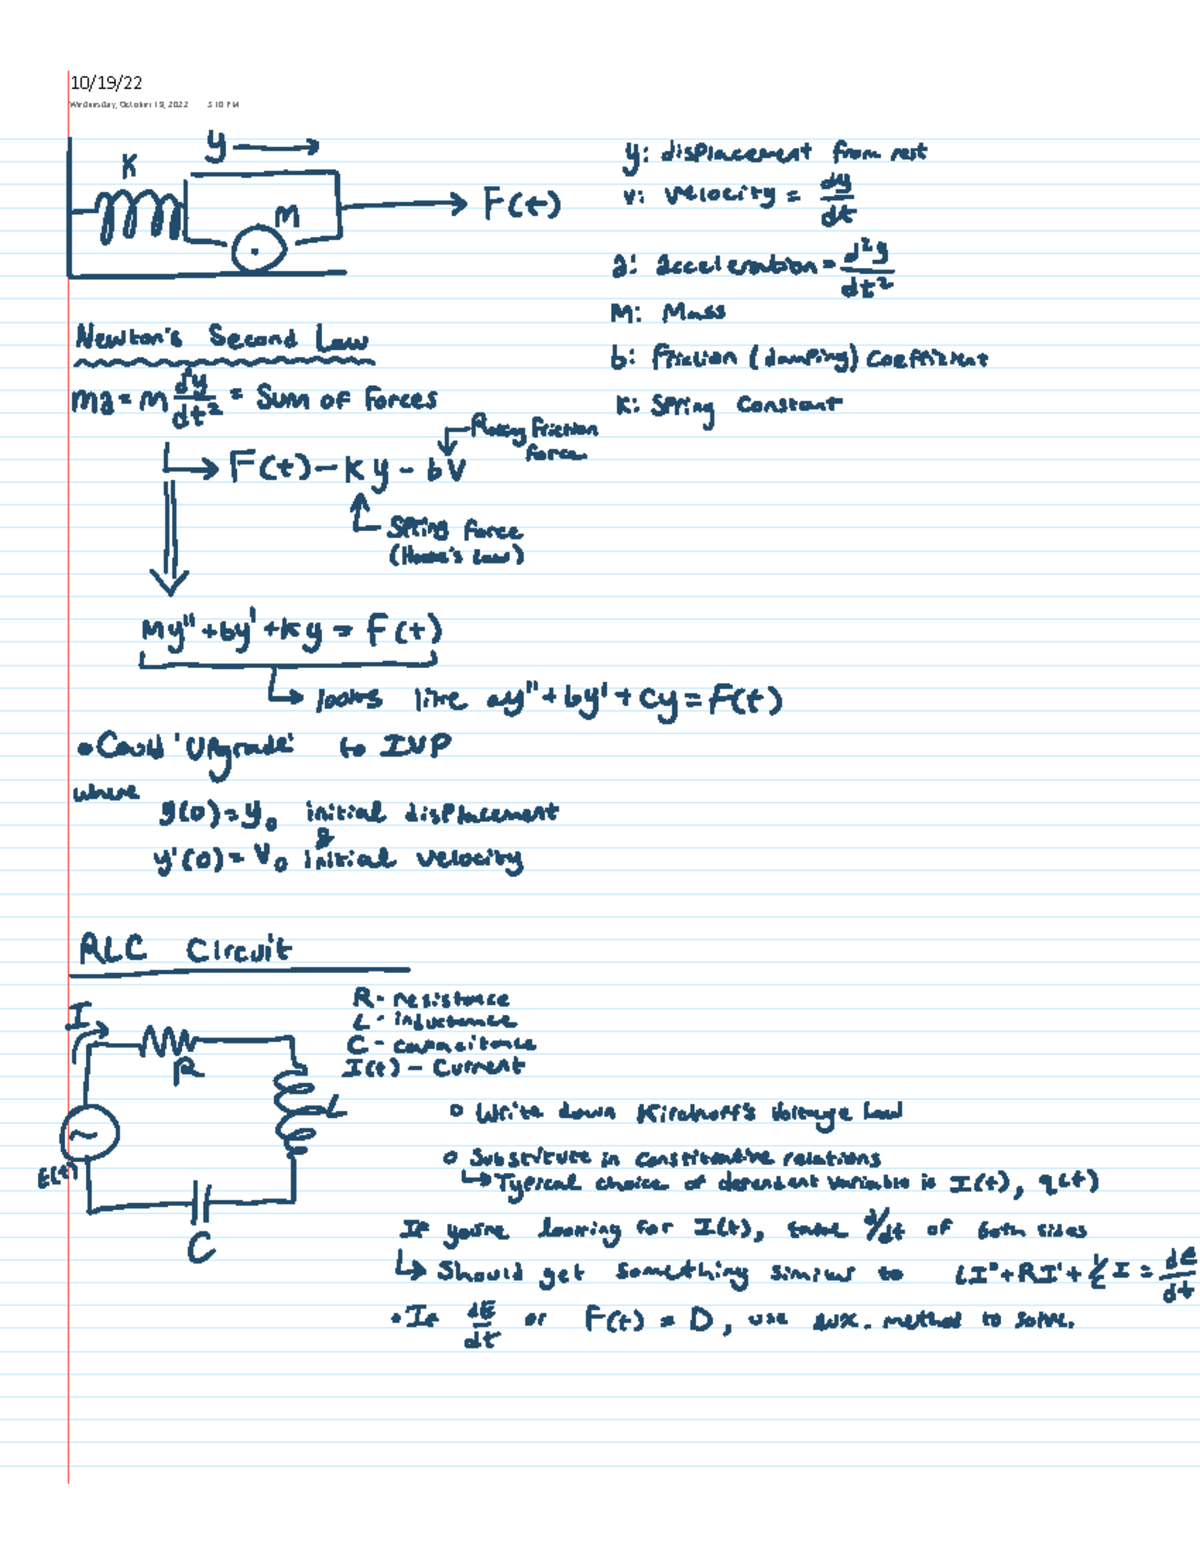 10/19/22
Wednesday, October 19, 2022 5:10 PM
y →
K
M
→ F(t)
y: displacement from rest
v: velocity = dy/dt
a: acceleration = d²y/dt²
M: Mass
b: friction (damping) coefficient
K: Spring Constant
Newton's Second Law
ma = M dy/dt² = Sum of Forces
Rolling friction
force
→ F(t) - Ky - bV
Spring force
(Hooke's Law)
My'' + by' + Ky = F(t)
→ looks like ay'' + by' + cy = F(t)
• Could 'Upgrade' to IVP
where
y(0) = y₀ initial displacement
&
y'(0) = V₀ initial velocity
RLC Circuit
I
R
L
E(t)
C
R - resistance
L - inductance
C - capacitance
I(t) - Current
o Write down Kirchoff's Voltage Law
o Substitute in constitutive relations
↳ Typical choice of dependent variable is I(t), q(t)
If you're looking for I(t), take d/dt of both sides
↳ Should get something similar to LI'' + RI' + 1/C I = dE/dt
• If dE/dt or F(t) = D, use aux. method to solve.